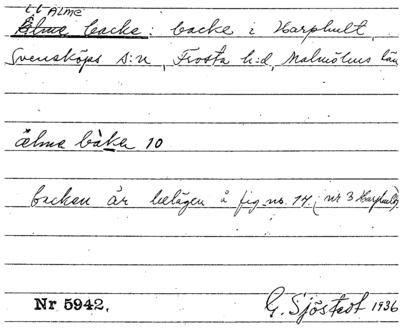 ÄLME
Älme backe: backe i Harphult,
Svensköps s:n, Frosta h:d, Malmöhus län
älme bàka 10
backen är belägen å fig. no. 17. (nr 3 Harphult)
Nr 5942. G. Sjöstedt 1936